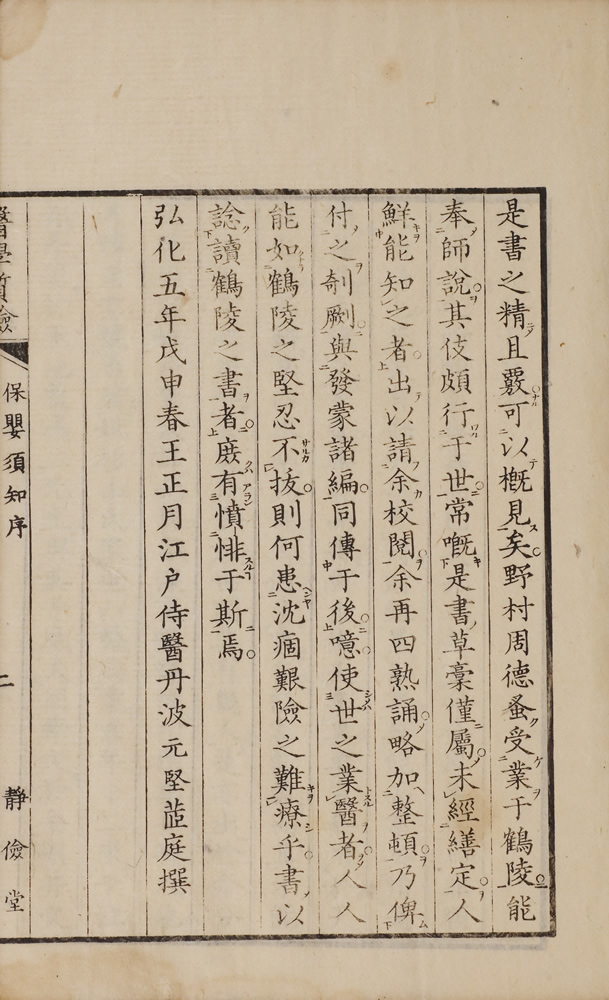 是書之精且覈可以概見矣野村周德蚤受業于鶴陵能
奉師說其伎頗行于世常嘅是書草稾僅屬未經繕定人
鮮能知之者出以請余校閱余再四熟誦略加整頓乃俾
付之剞劂與發蒙諸編同傳于後噫使世之業醫者人人
能如鶴陵之堅忍不拔則何患沈痼艱險之難療乎書以
諗讀鶴陵之書者庶有憤悱于斯焉
弘化五年戊申春王正月江戶侍醫丹波元堅茝庭撰
保嬰須知序 二 靜儉堂